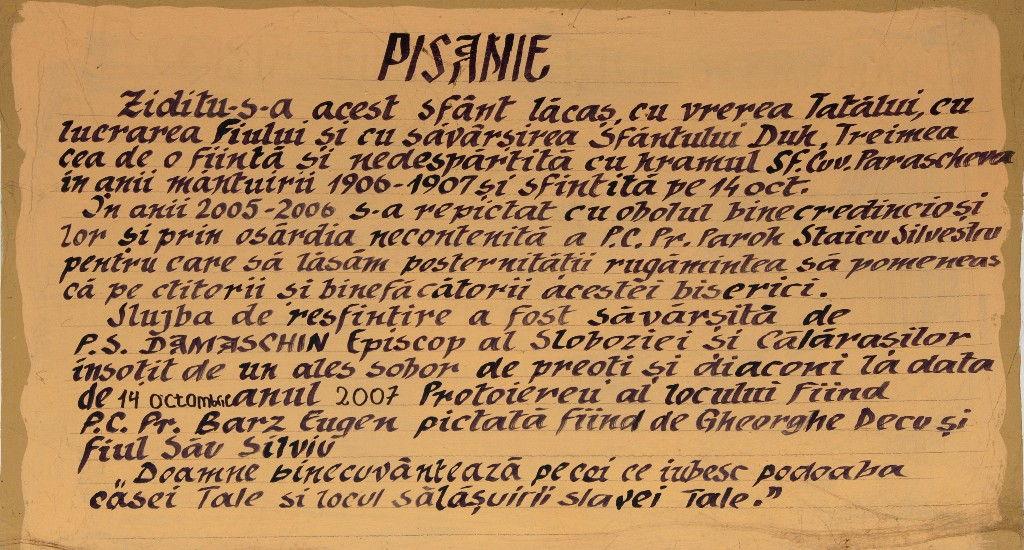 PISANIE
Ziditu-s-a acest sfânt lăcaș, cu vrerea Tatălui, cu
lucrarea Fiului și cu săvârșirea Sfântului Duh, Treimea
cea de o ființă și nedespărțită cu hramul Sf. Cuv. Parascheva
în anii mântuirii 1906-1907 și sfințită pe 14 oct.
În anii 2005-2006 s-a repictat cu obolul binecredincioși
lor și prin osârdia necontenită a P.C. Pr. Paroh Staicu Silvestru
pentru care să lăsăm posternității rugămintea să pomeneas
că pe ctitorii și binefăcătorii acestei biserici.
Slujba de resfințire a fost săvârșită de
P.S. DAMASCHIN Episcop al Sloboziei și Călărașilor
însoțit de un ales sobor de preoți și diaconi la data
de 14 octombrie anul 2007 Protoiereu al locului fiind
P.C. Pr. Barz Eugen pictată fiind de Gheorghe Decu și
fiul Său Silviu
„Doamne binecuvântează pe cei ce iubesc podoaba
căsei Tale si locul sălășuirii slavei Tale.”